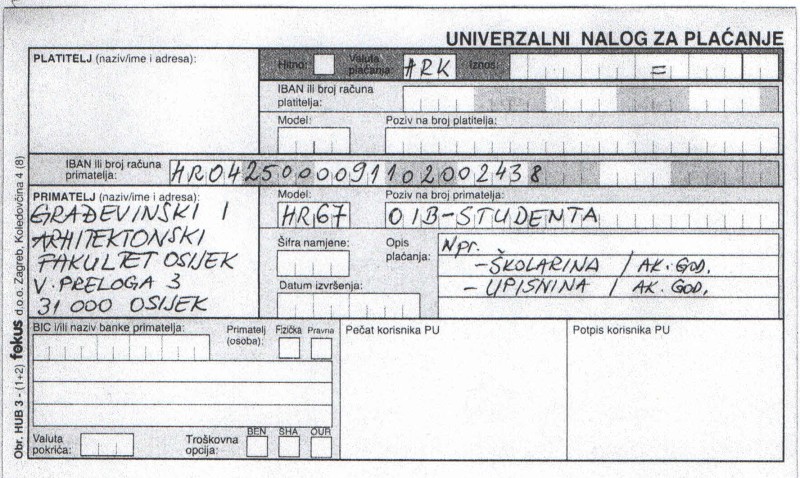 UNIVERZALNI NALOG ZA PLAĆANJE
PLATITELJ (naziv/ime i adresa):
Hitno:
Valuta plaćanja: HRK
Iznos: =
IBAN ili broj računa platitelja:
Model:
Poziv na broj platitelja:
IBAN ili broj računa primatelja: HR0425000091102002438
PRIMATELJ (naziv/ime i adresa):
GRAĐEVINSKI I
ARHITEKTONSKI
FAKULTET OSIJEK
V. PRELOGA 3
31 000 OSIJEK
Model:
HR67
Poziv na broj primatelja:
OIB-STUDENTA
Šifra namjene:
Datum izvršenja:
Opis plaćanja:
Npr.
- ŠKOLARINA / AK. GOD.
- UPISNINA / AK. GOD.
BIC i/ili naziv banke primatelja:
Primatelj (osoba): Fizička Pravna
Valuta pokrića:
Troškovna opcija: BEN SHA OUR
Pečat korisnika PU
Potpis korisnika PU
Obr. HUB 3 - (1+2) fokus d.o.o. Zagreb, Koledovčina 4 (8)